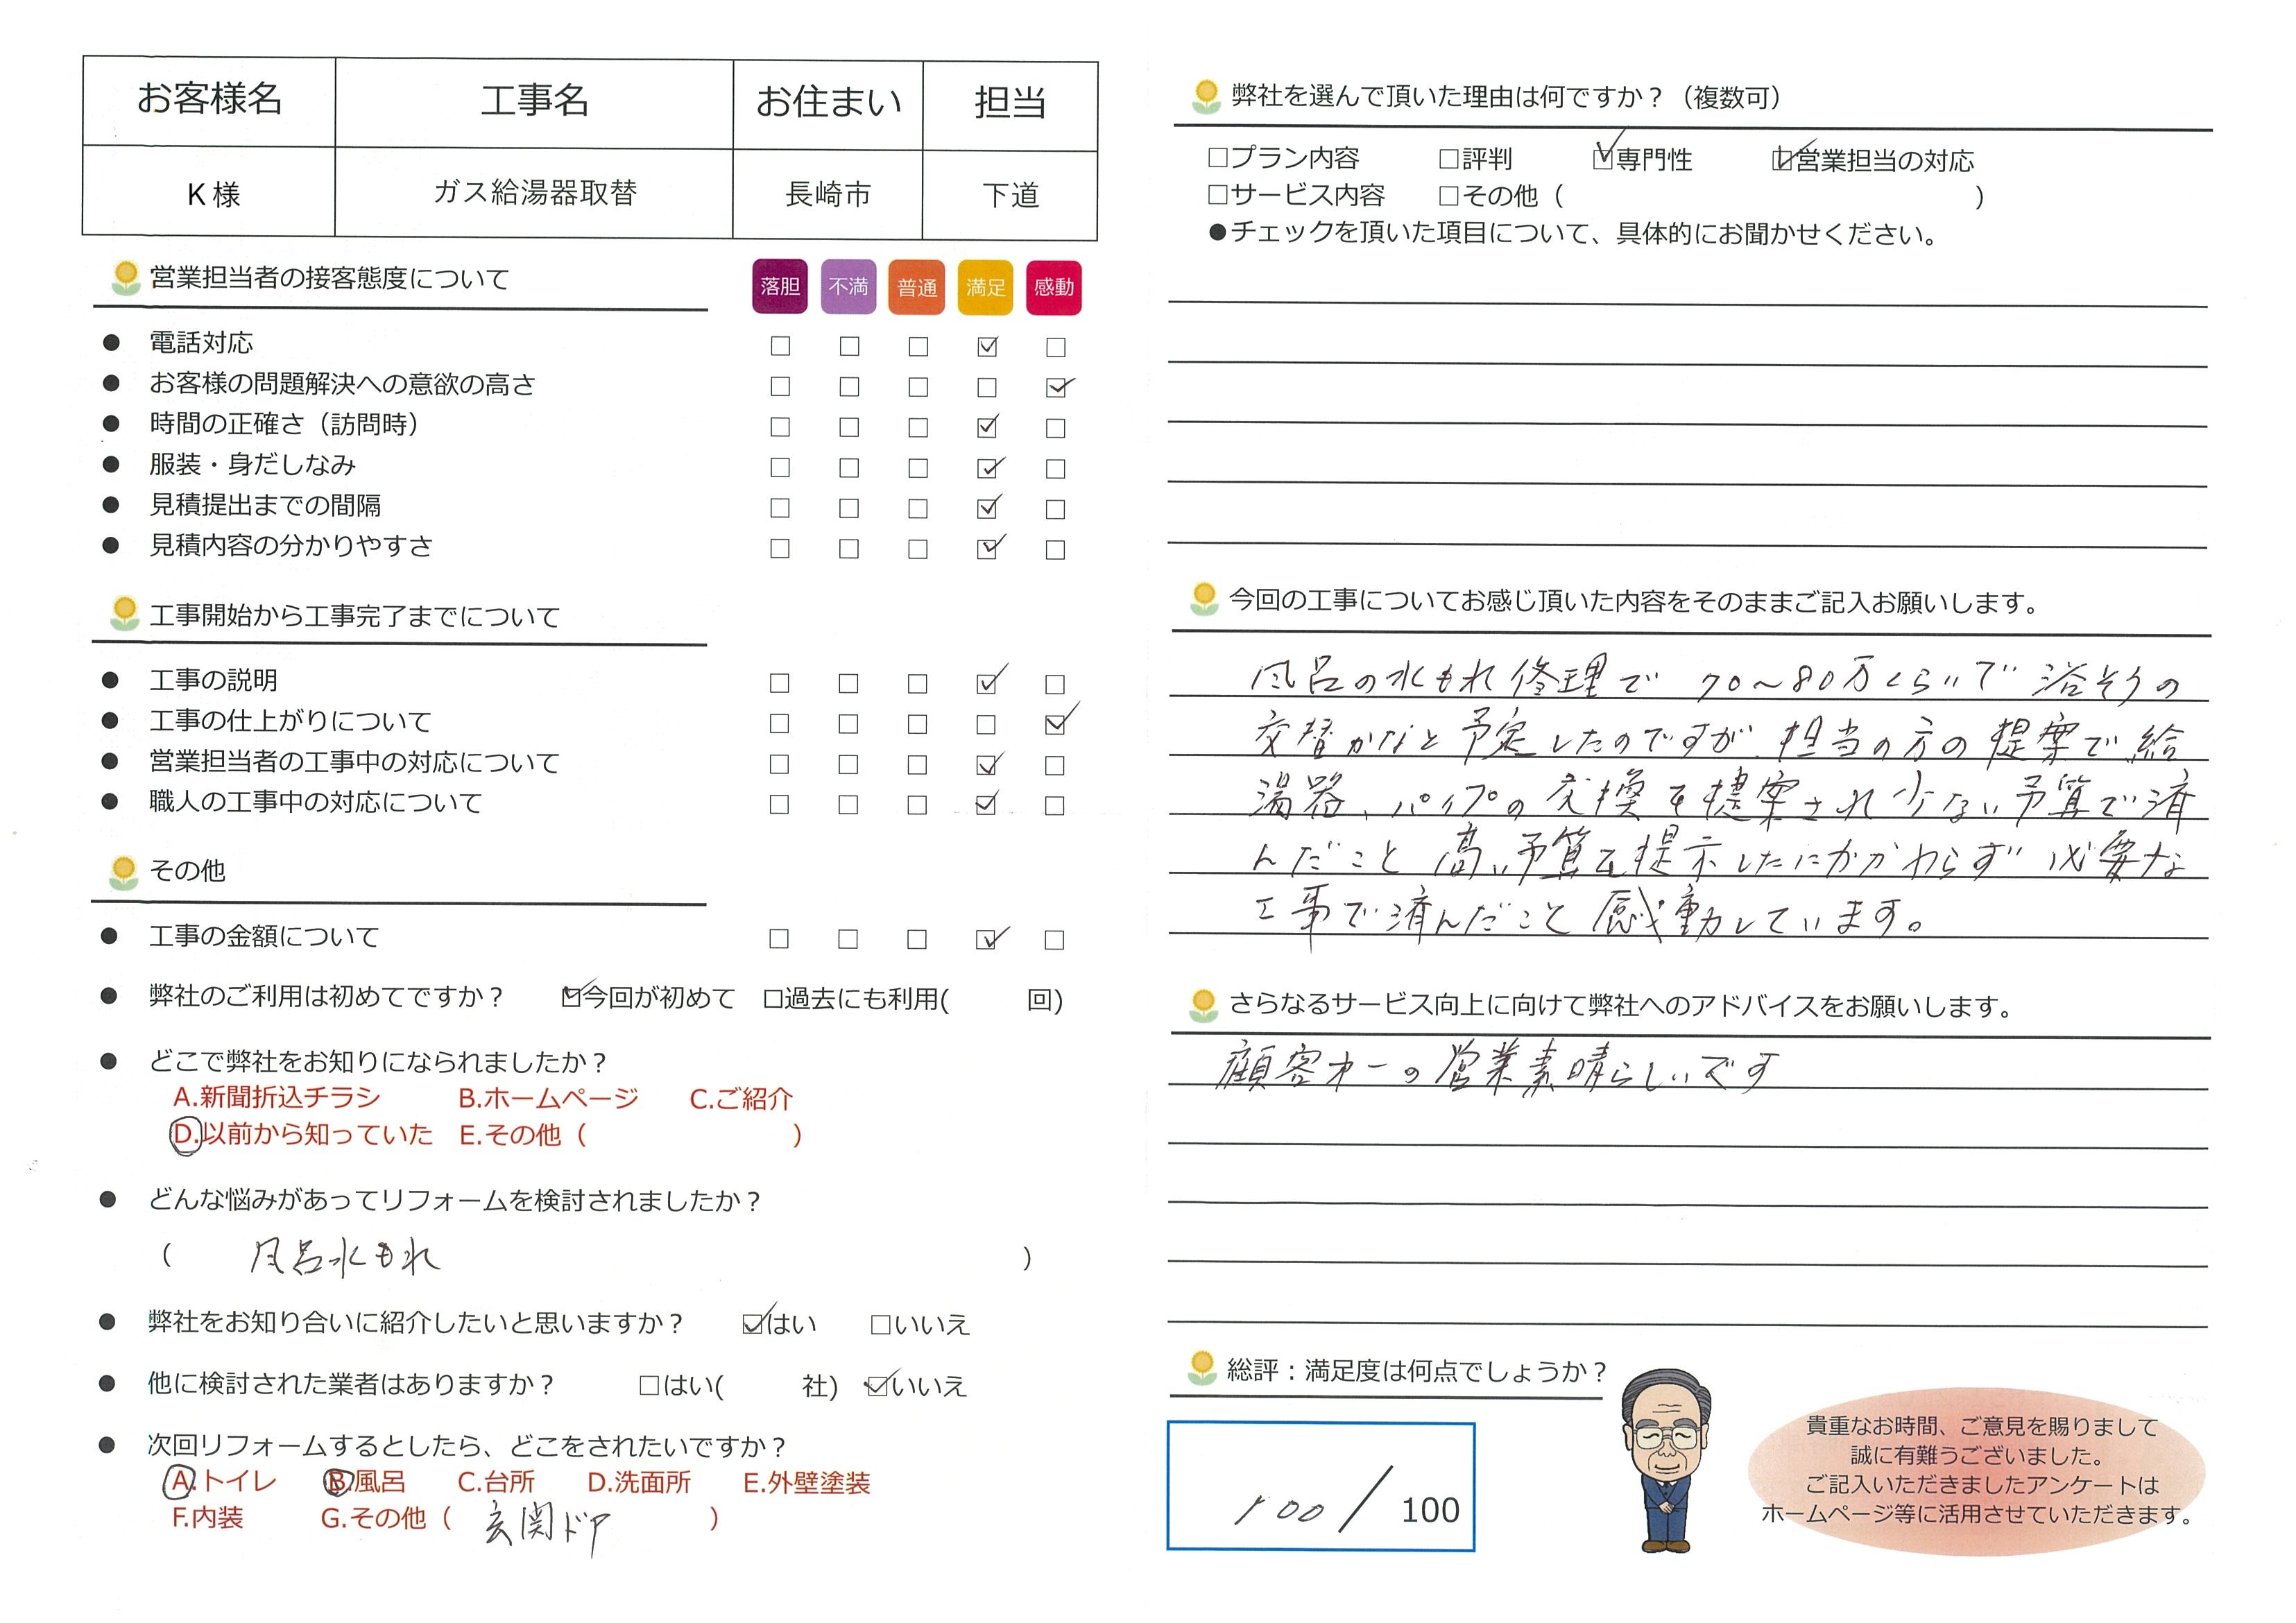 お客様名 工事名 お住まい 担当
K様 ガス給湯器取替 長崎市 下道
営業担当者の接客態度について 落胆 不満 普通 満足 感動
● 電話対応 □ □ □ ☑ □
● お客様の問題解決への意欲の高さ □ □ □ □ ☑
● 時間の正確さ（訪問時） □ □ □ ☑ □
● 服装・身だしなみ □ □ □ ☑ □
● 見積提出までの間隔 □ □ □ ☑ □
● 見積内容の分かりやすさ □ □ □ ☑ □
工事開始から工事完了までについて
● 工事の説明 □ □ □ ☑ □
● 工事の仕上がりについて □ □ □ □ ☑
● 営業担当者の工事中の対応について □ □ □ ☑ □
● 職人の工事中の対応について □ □ □ ☑ □
その他
● 工事の金額について □ □ □ ☑ □
● 弊社のご利用は初めてですか？ ☑今回が初めて □過去にも利用( 回)
● どこで弊社をお知りになられましたか？
A.新聞折込チラシ B.ホームページ C.ご紹介
D.以前から知っていた E.その他（ ）
● どんな悩みがあってリフォームを検討されましたか？
（ 風呂水もれ ）
● 弊社をお知り合いに紹介したいと思いますか？ ☑はい □いいえ
● 他に検討された業者はありますか？ □はい( 社) ☑いいえ
● 次回リフォームするとしたら、どこをされたいですか？
A.トイレ B.風呂 C.台所 D.洗面所 E.外壁塗装
F.内装 G.その他（ 玄関ドア ）
弊社を選んで頂いた理由は何ですか？（複数可）
□プラン内容 □評判 ☑専門性 ☑営業担当の対応
□サービス内容 □その他（ ）
●チェックを頂いた項目について、具体的にお聞かせください。
今回の工事についてお感じ頂いた内容をそのままご記入お願いします。
風呂の水もれ修理で 70～80万くらいで 浴そうの
交替かなと予定したのですが、担当の方の提案で給
湯器、パイプの交換を提案され少ない予算で済
んだこと 高い予算を提示したにかかわらず 必要な
工事で済んだこと 感動しています。
さらなるサービス向上に向けて弊社へのアドバイスをお願いします。
顧客オ一の営業素晴らしいです
総評：満足度は何点でしょうか？
100/100
貴重なお時間、ご意見を賜りまして
誠に有難うございました。
ご記入いただきましたアンケートは
ホームページ等に活用させていただきます。